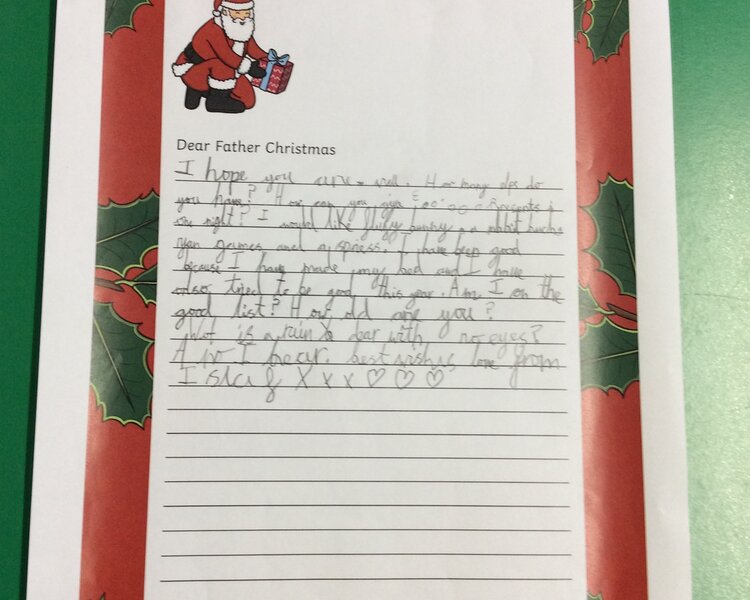 Dear Father Christmas
I hope you are well. How many do
you have? How can you presents in
one night? I would like fluffy bunny, a rabbit
games and a I have been good
because I have made my bed and I have
also tried to be good this year. Am I on the
good list? How old are you?
Wot is a rain dear with no eyes?
A no I dear. best wishis love from
X x x ♡ ♡ ♡